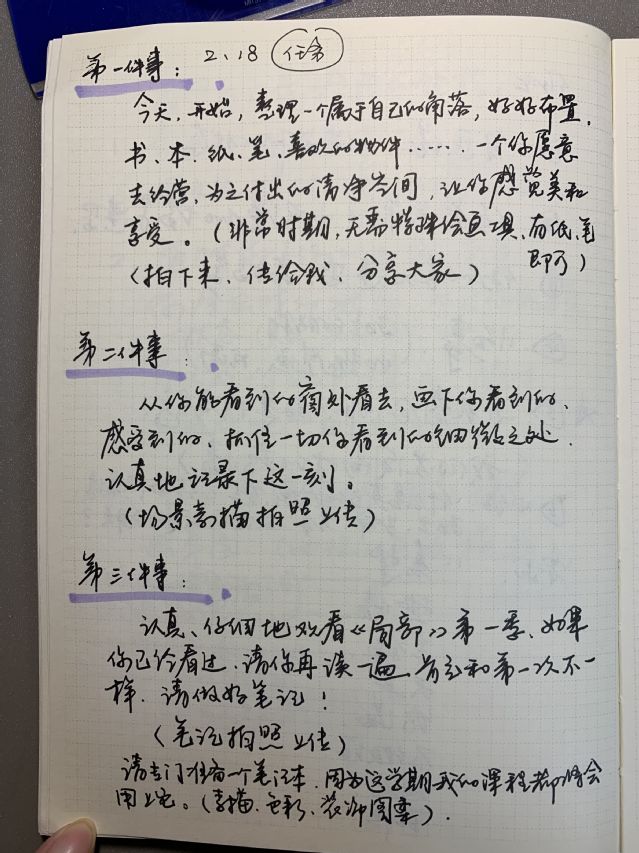 2.18 任务
第一件事：
今天，开始，整理一个属于自己的角落，好好布置，
书、本、纸、笔、喜欢的物件……，一个你愿意
去经营，为之付出的清净空间，让你感觉美和
享受。（非常时期，无需特殊绘画工具，有纸、笔
即可）
（拍下来、传给我、分享大家）
第二件事：
从你能看到的窗外看去，画下你看到的、
感受到的、抓住一切你看到的细微之处、
认真地记录下这一刻。
（场景素描拍照上传）
第三件事：
认真、仔细地观看《局部》第一季、如果
你已经看过、请你再读一遍 肯定和第一次不一
样、请做好笔记！
（笔记拍照上传）
请专门准备一个笔记本，因为这学期我们的课程都将会
用上它。（素描、色彩、装饰图案）.